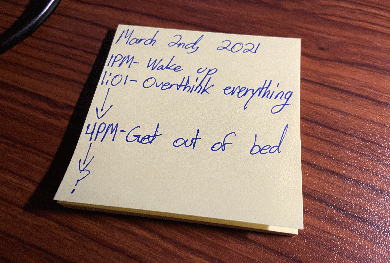 March 2nd, 2021
1PM- Wake up
1:01- Overthink everything
4PM-Get out of bed
?